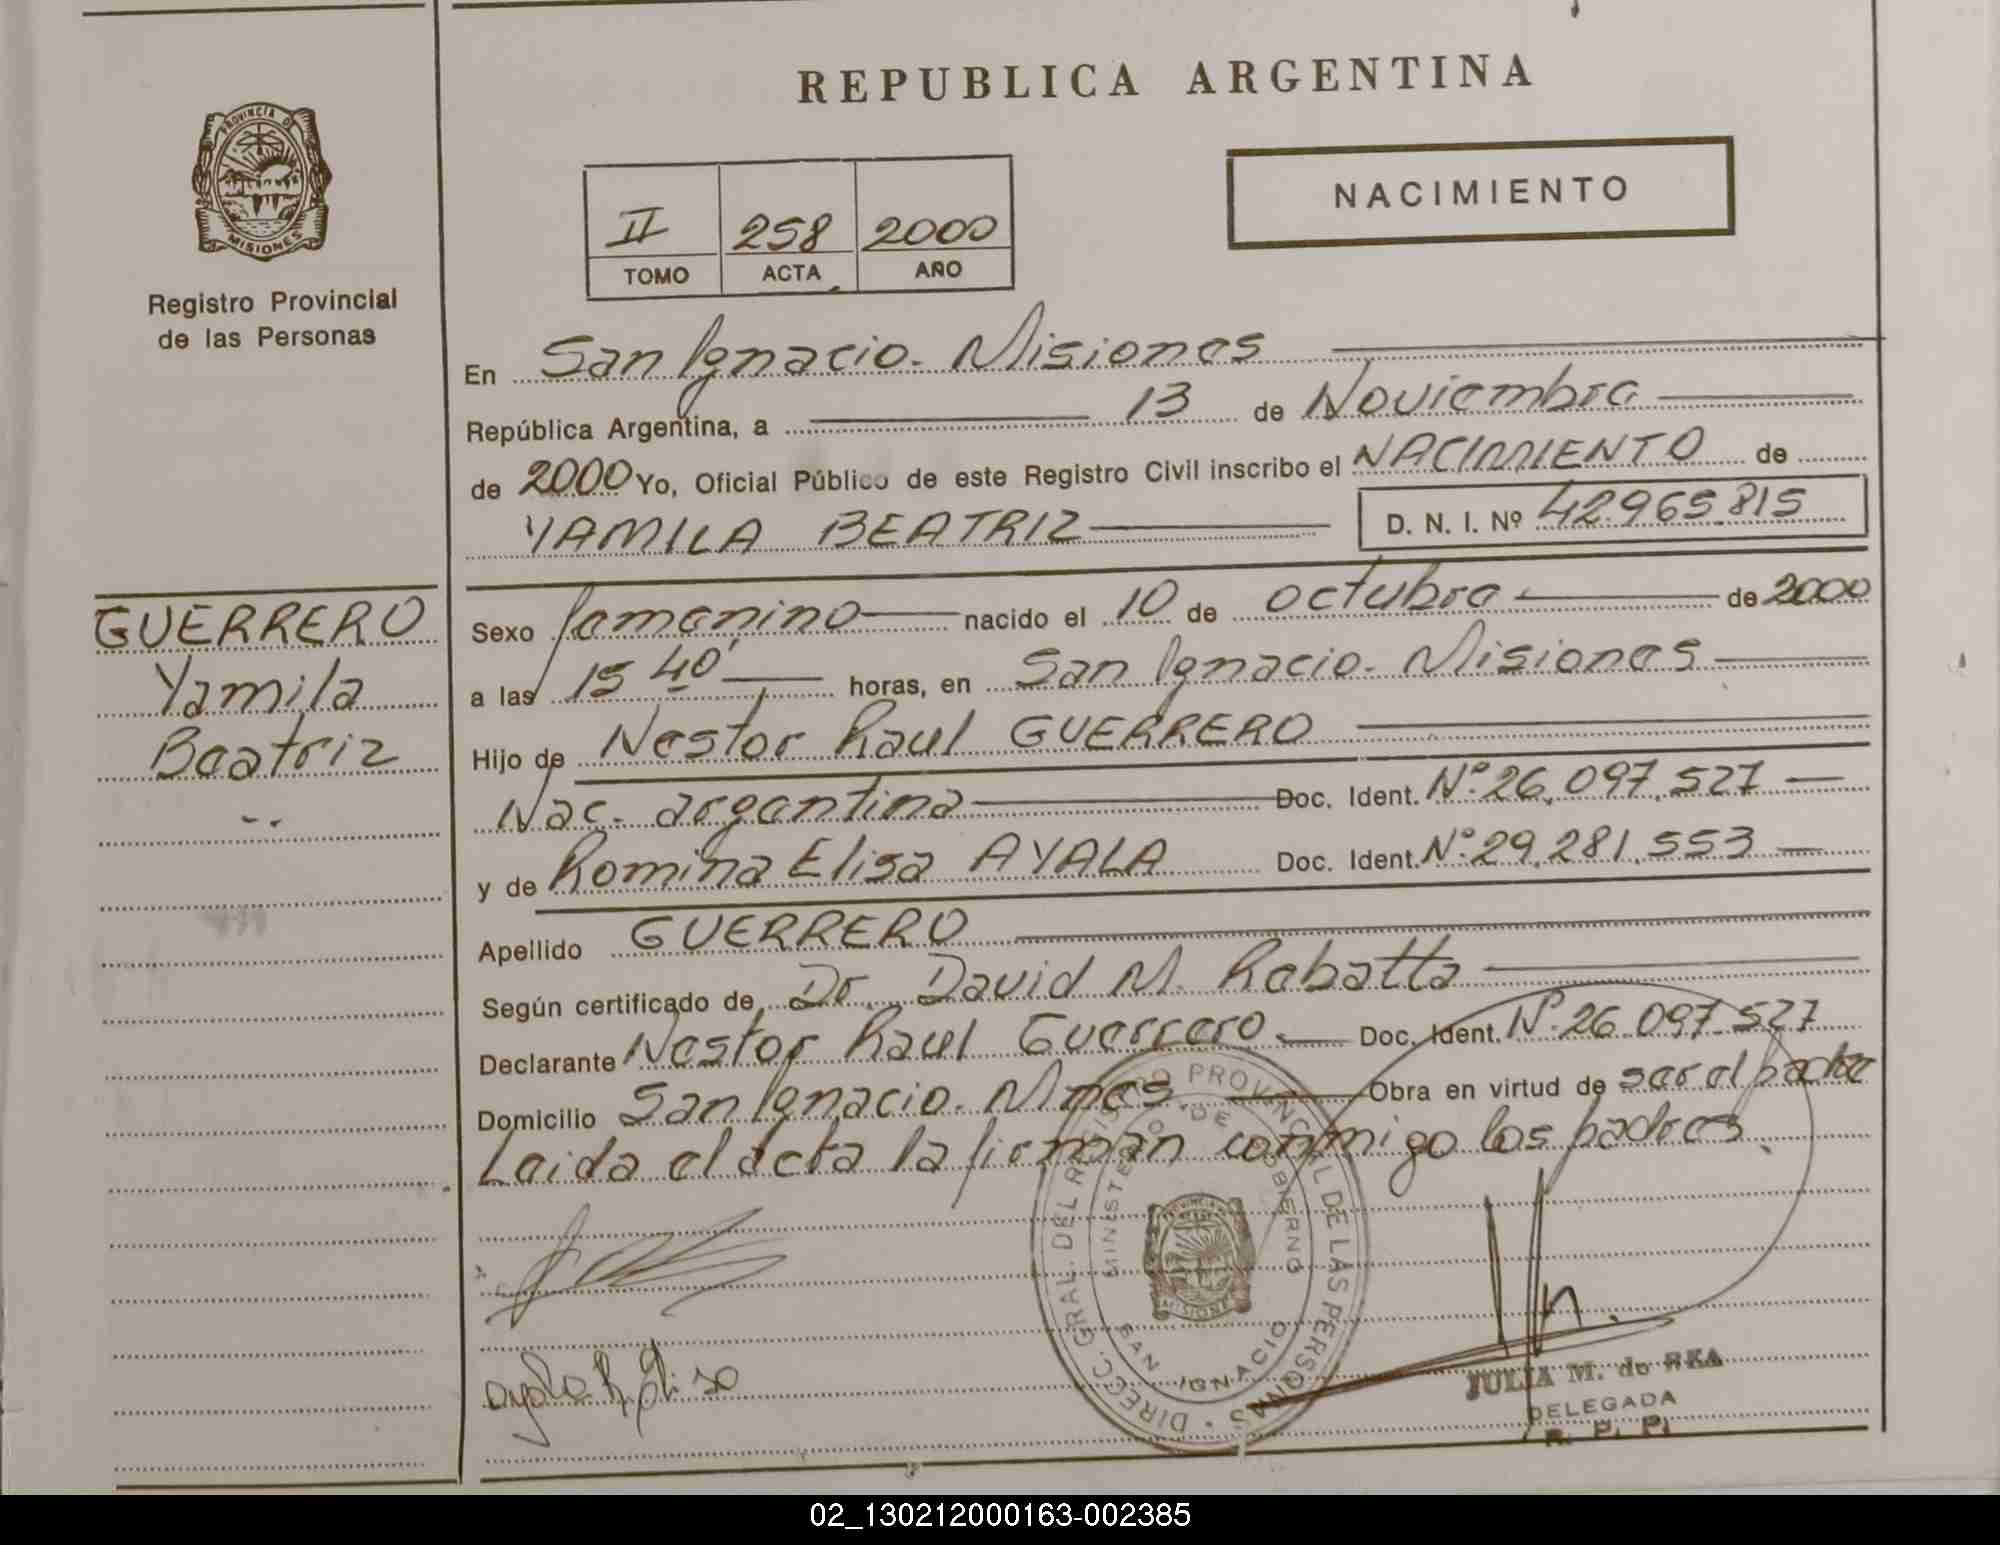 REPUBLICA ARGENTINA
PROVINCIA DE
MISIONES
Registro Provincial
de las Personas
NACIMIENTO
II 258 2000
TOMO ACTA AÑO
En San Ignacio. Misiones
República Argentina, a 13 de Noviembre
de 2000 Yo, Oficial Público de este Registro Civil inscribo el NACIMIENTO de
YAMILA BEATRIZ D. N. I. Nº 42.965.815
GUERRERO
Yamila
Beatriz
Sexo femenino nacido el 10 de octubre de 2000
a las 15 40' horas, en San Ignacio. Misiones
Hijo de Nestor Raul GUERRERO
Nac. argentina Doc. Ident. Nº 26.097.527
y de Romina Elisa AYALA Doc. Ident. Nº 29.281.553
Apellido GUERRERO
Según certificado de Dr. David M. Rebatta
Declarante Nestor Raul Guerrero Doc. Ident. Nº 26.097.527
Domicilio San Ignacio. Mnes. Obra en virtud de ser el padre
Leida el acta la firman conmigo los padres.
DIRECC. GRAL. DEL REGISTRO PROVINCIAL DE LAS PERSONAS
MINISTERIO DE GOBIERNO
SAN IGNACIO
Ayala R. Elisa
JULIA M. de REA
DELEGADA
R. P. P.
02_130212000163-002385